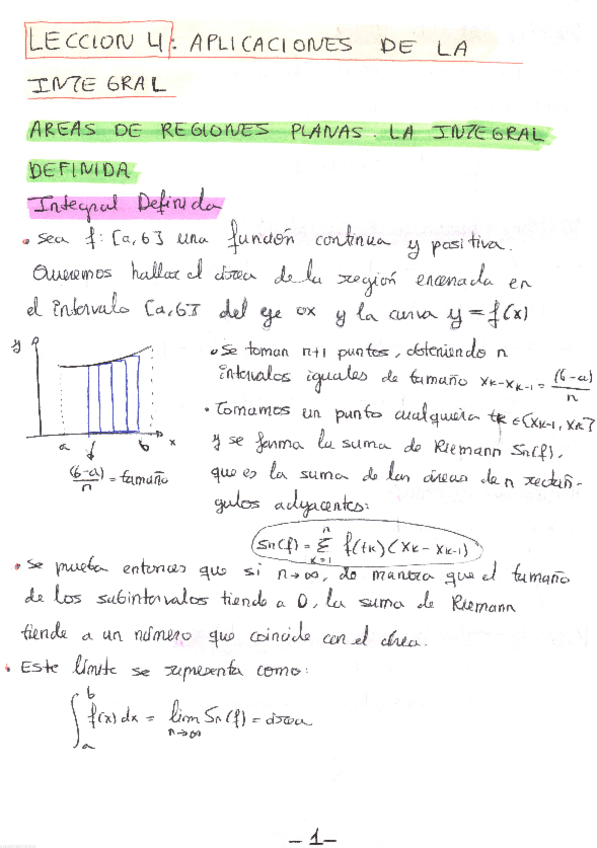 LECCION 4: APLICACIONES DE LA
INTEGRAL
AREAS DE REGIONES PLANAS. LA INTEGRAL
DEFINIDA
Integral Definida
• Sea f: [a,b] una función continua y positiva.
Queremos hallar el área de la región encerrada en
el intervalo [a,b] del eje OX y la curva y = f(x)
y
a b x
(b-a)/n = tamaño
• Se toman n+1 puntos, obteniendo n
intervalos iguales de tamaño xk-xk-1 = (b-a)/n
• Tomamos un punto cualquiera tk ∈ [xk-1, xk]
y se forma la suma de Riemann Sn(f),
que es la suma de las áreas de n rectán-
gulos adyacentes:
Sn(f) = Σ k=1 n f(tk)(xk - xk-1)
• Se prueba entonces que si n→∞, de manera que el tamaño
de los subintervalos tiende a 0, la suma de Riemann
tiende a un número que coincide con el área.
• Este límite se representa como:
∫ab f(x) dx = lim n→∞ Sn(f) = área
- 1 -